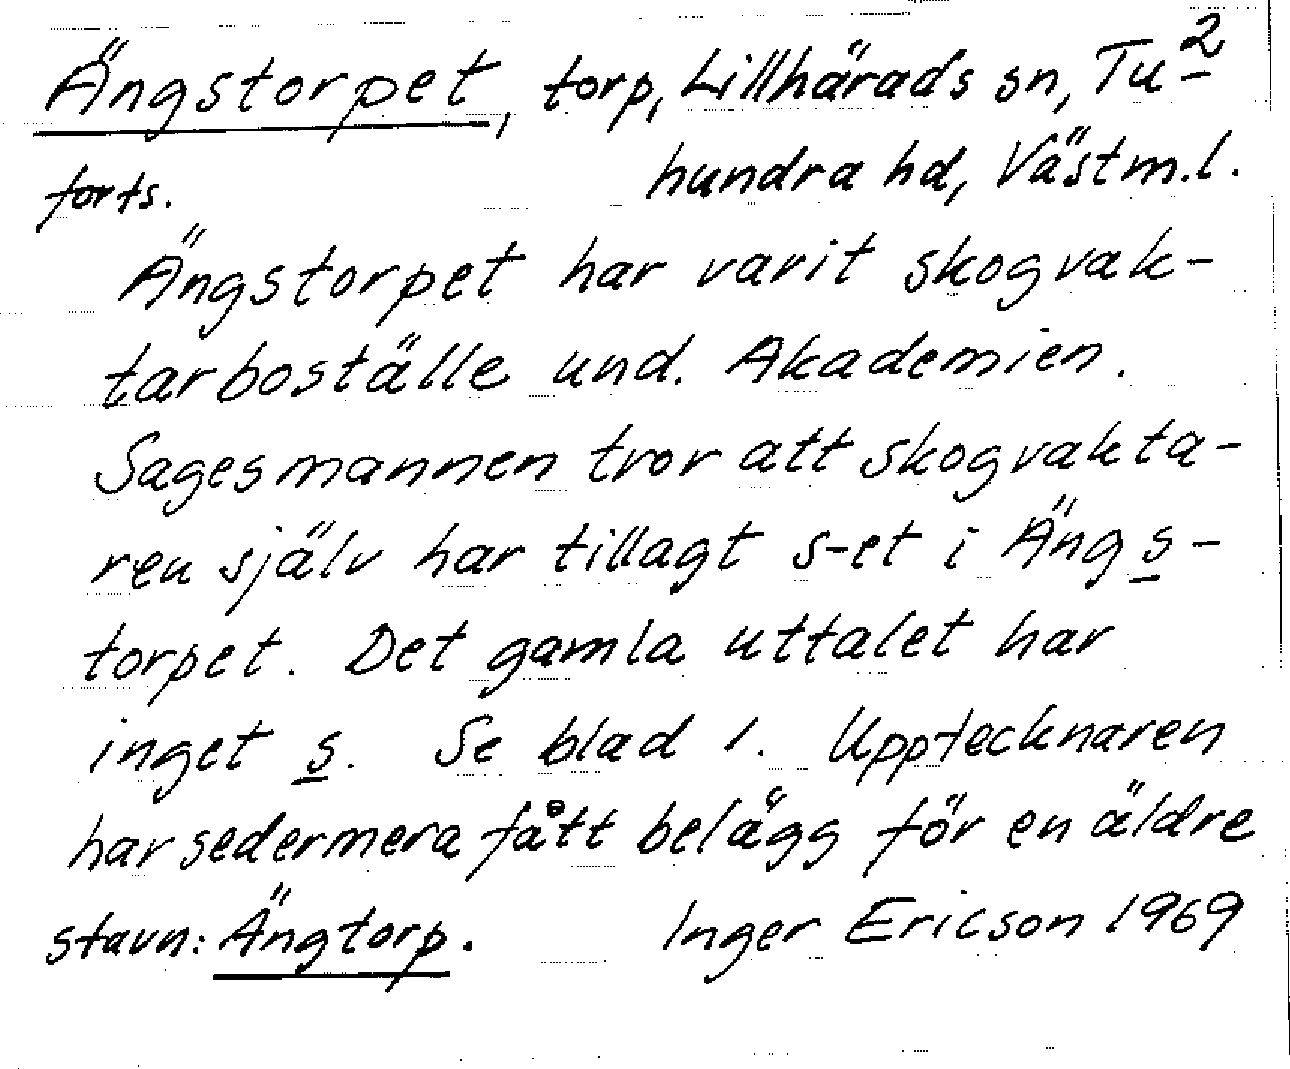 2
Ängstorpet, torp, Lillhärads sn, Tu-
forts. hundra hd, Västm.l.
Ängstorpet har varit skogvak-
tarboställe und. Akademien.
Sagesmannen tror att skogvakta-
ren själv har tillagt s-et i Ängs-
torpet. Det gamla uttalet har
inget s. Se blad 1. Upptecknaren
har sedermera fått belägg för en äldre
stavn: Ängtorp. Inger Ericson 1969